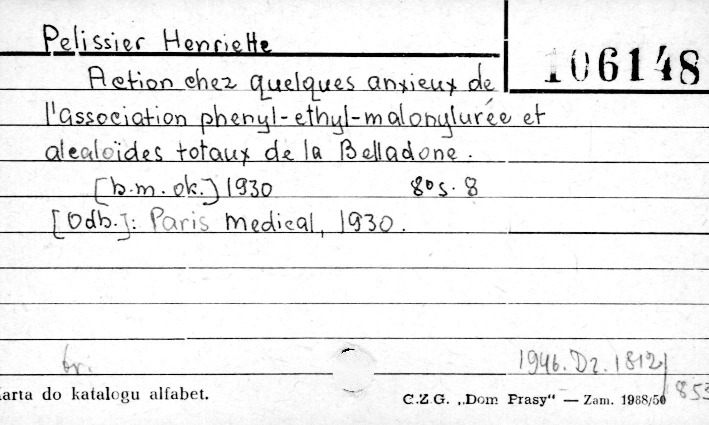 Pelissier Henriette
106148
Action chez quelques anxieux de
l'association phenyl-ethyl-malonylurée et
alcaloïdes totaux de la Belladone.
[b.m. ok.] 1930 8° s. 8
[Odb.]: Paris medical, 1930.
br.
1946. Dz. 1812/
853
Karta do katalogu alfabet.
C.Z.G. „Dom Prasy" — Zam. 1988/50